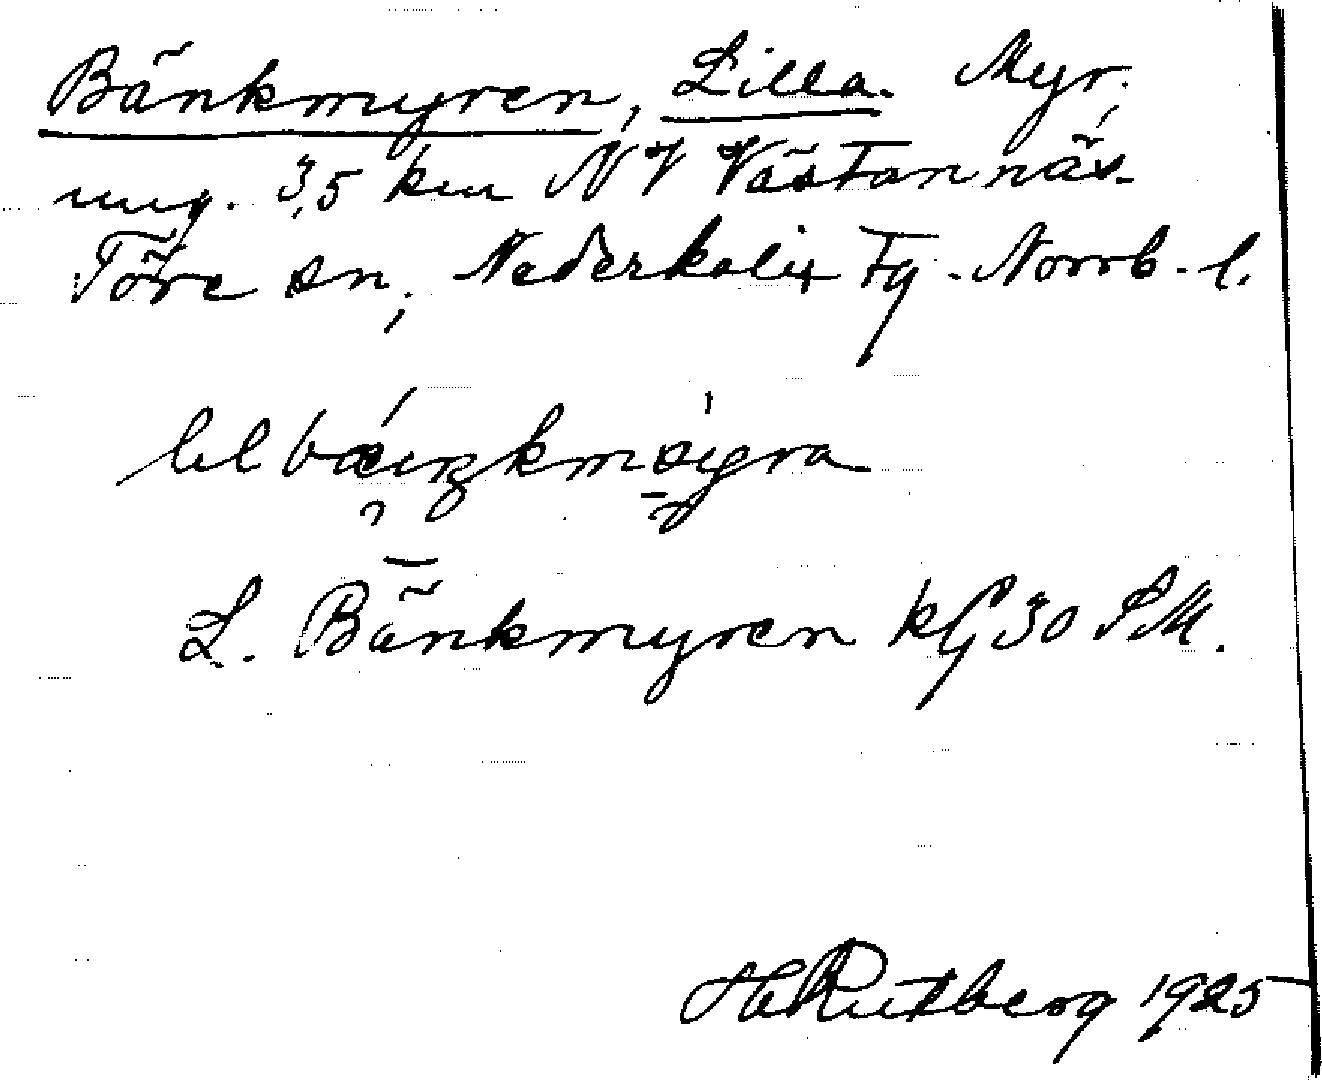 Bänkmyren, Lilla. Myr,
ung. 3,5 km NV Västannäs.
Töre sn, Nederkalix tg. Norrb. l.
lil
L. Bänkmyren kbl 30 SM.
H Rutberg 1925